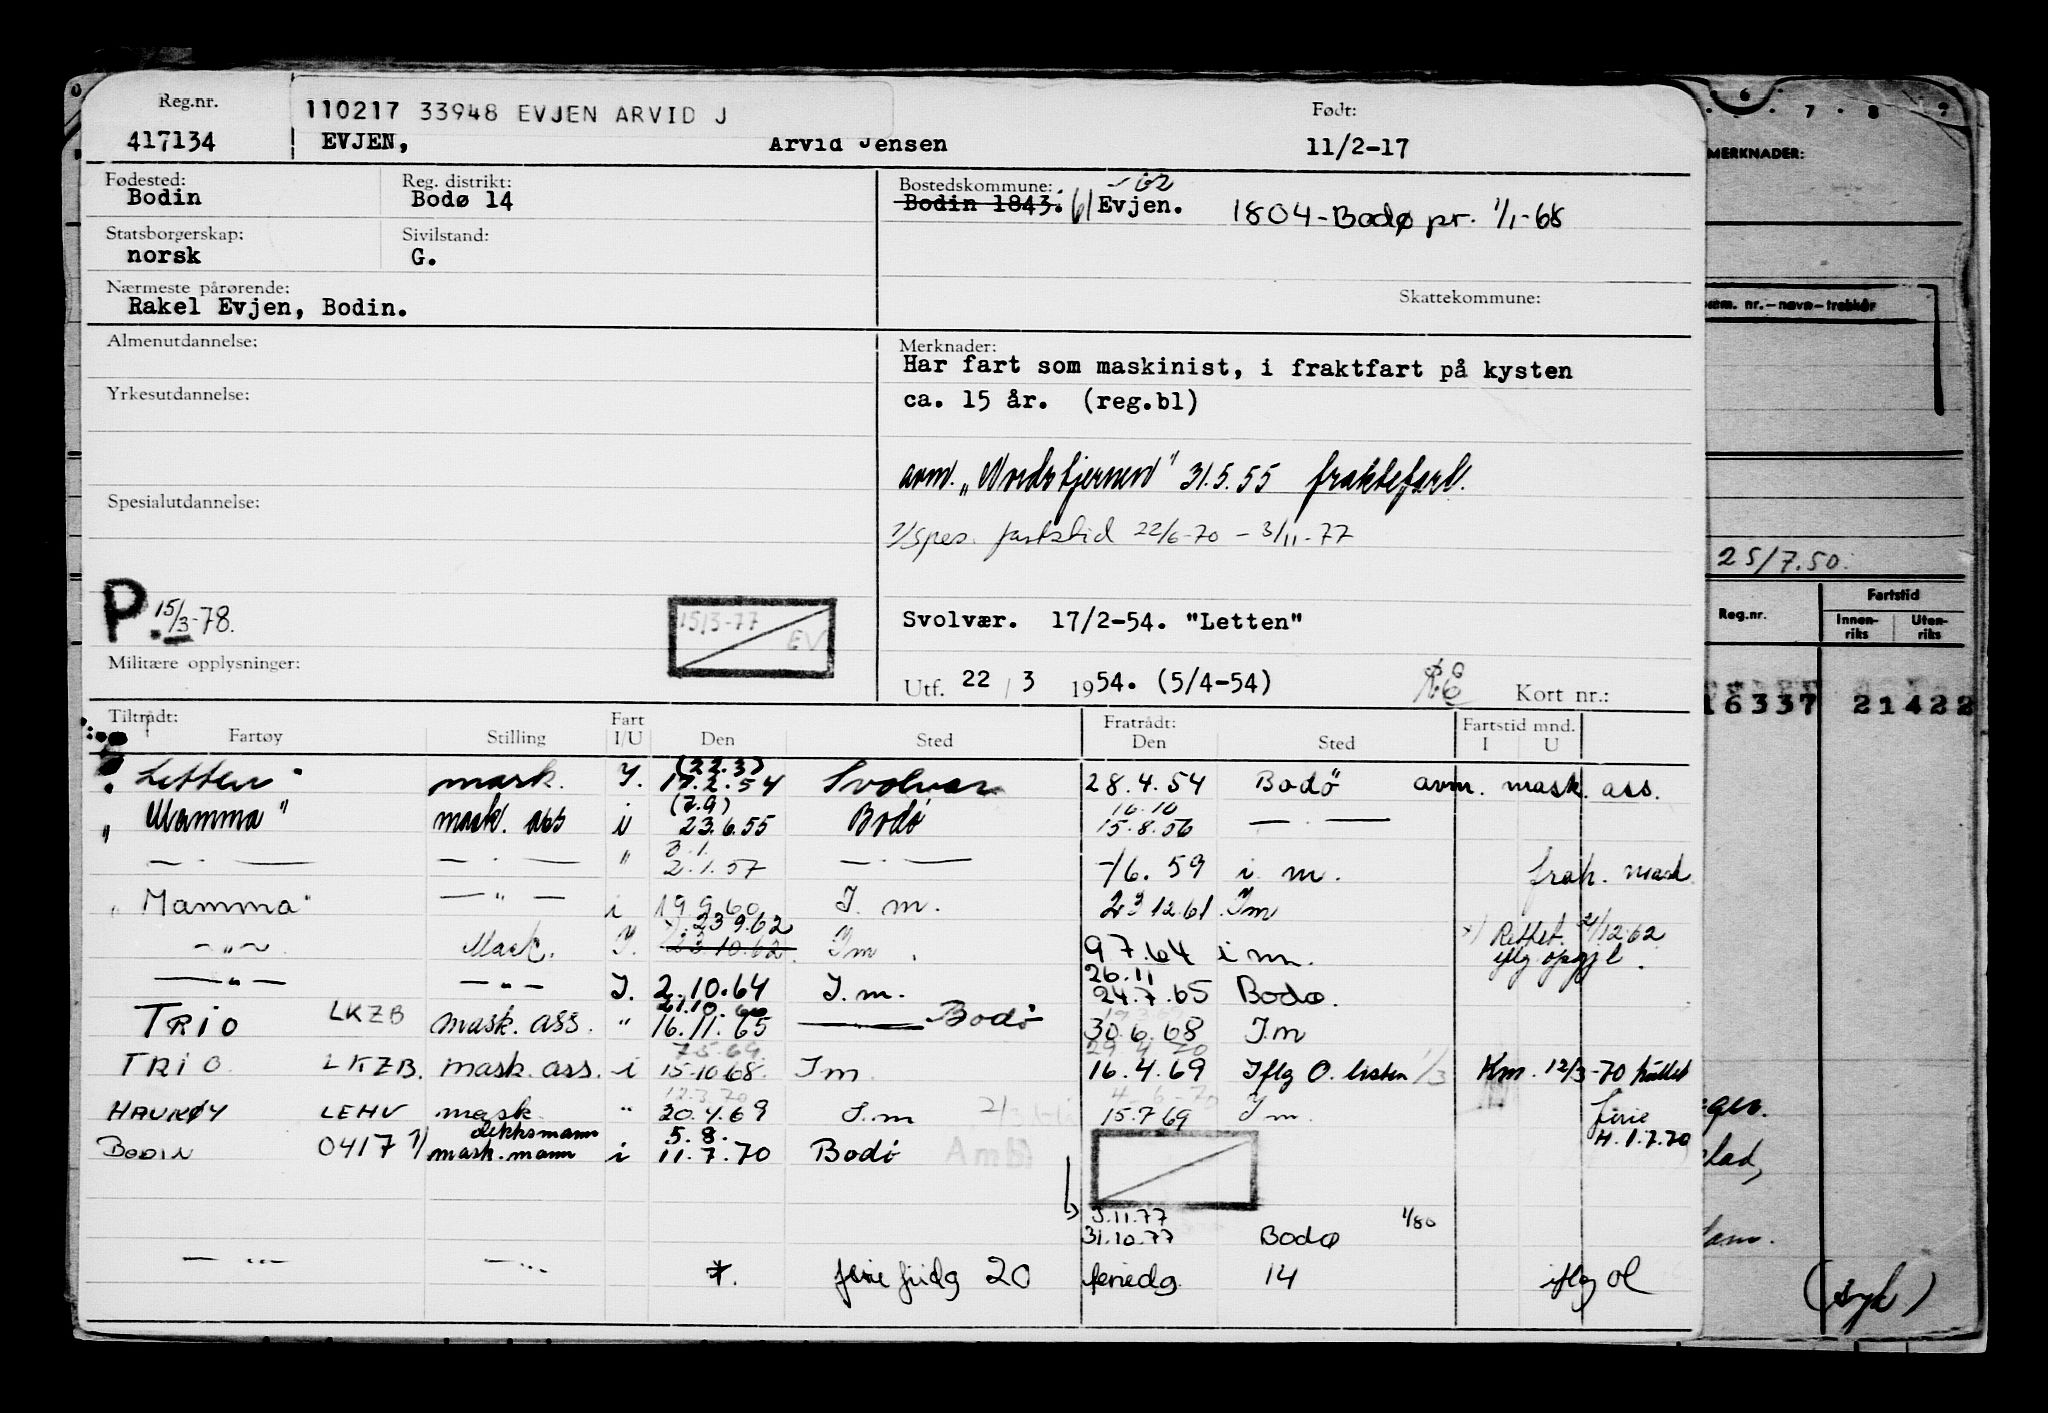 Reg.nr.
110217 33948 EVJEN ARVID J
Født:
417134 EVJEN, Arvid Jensen 11/2-17
Fødested: Reg. distrikt: Bostedskommune:
Bodin Bodø 14 Bodin 1843. Evjen. 1804-Bodø pr. 1/1-68
Statsborgerskap: Sivilstand:
norsk G.
Nærmeste pårørende: Skattekommune:
Rakel Evjen, Bodin.
Almenutdannelse:
Merknader:
Har fart som maskinist, i fraktfart på kysten
Yrkesutdannelse:
ca. 15 år. (reg.bl)
avm. „Nordstjernen" 31.5.55 fraktefart.
Spesialutdannelse:
1/spes. fartstid 22/6-70 - 3/11-77
P. 15/3-78.
15/3-77
EV
Svolvær. 17/2-54. "Letten"
Militære opplysninger:
Utf. 22 / 3 1954. (5/4-54) Kort nr.:
Tiltrådt: Fart Fratrådt: Fartstid mnd.
Fartøy Stilling I/U Den Sted Den Sted I U
(22.3)
„Letten" mask. I. 17.2.54 Svolvær 28.4.54 Bodö avm. mask. ass.
(7.9) 16.10
„Mamma" mask. ass i 23.6.55 Bodø 15.8.56 — . —
3.1.
— . — — . — " 2.1.57 — . — -/6.59 i m. frak. mask
„Mamma" — " — i 19.9.60 I. m. 23.12.61 Im
23.9.62
— " — Mask. I. 23.10.62. Im. 9.7.64 i m. x) Rettet 21/12.62
iflg oppg
26.11
— " — — " — I. 2.10.64 I. m. 24.7.65 Bodø.
21.10.66
TRIO LKZB mask. ass. " 16.11.65 Bodö 30.6.68 I.m
7.5.69. 29.4.70
TRIO. LKZB. mask. ass. i 15.10.68. Im. 16.4.69 Iflg O. listen 1/3 Km. 12/3-70
12.3.70 4-6-70
HAUKØY LEHV mask. " 20.4.69 I.m 15.7.69 I m. ferie
H. 1.7.70
dekksmann 5.8.
BODIN 0417 1) mask. mann i 11.7.70 Bodö
3.11.77 1/80
31.10.77 Bodø
— " — — " — *. ferie fridg 20 feriedg. 14 iflg ol
6 . 7 . 8 . 9
MERKNADER:
nr.-navn-trekkår
25/7.50.
Reg.nr. Fartstid
Innen-
riks
Uten-
riks
16337 21422
(syk)